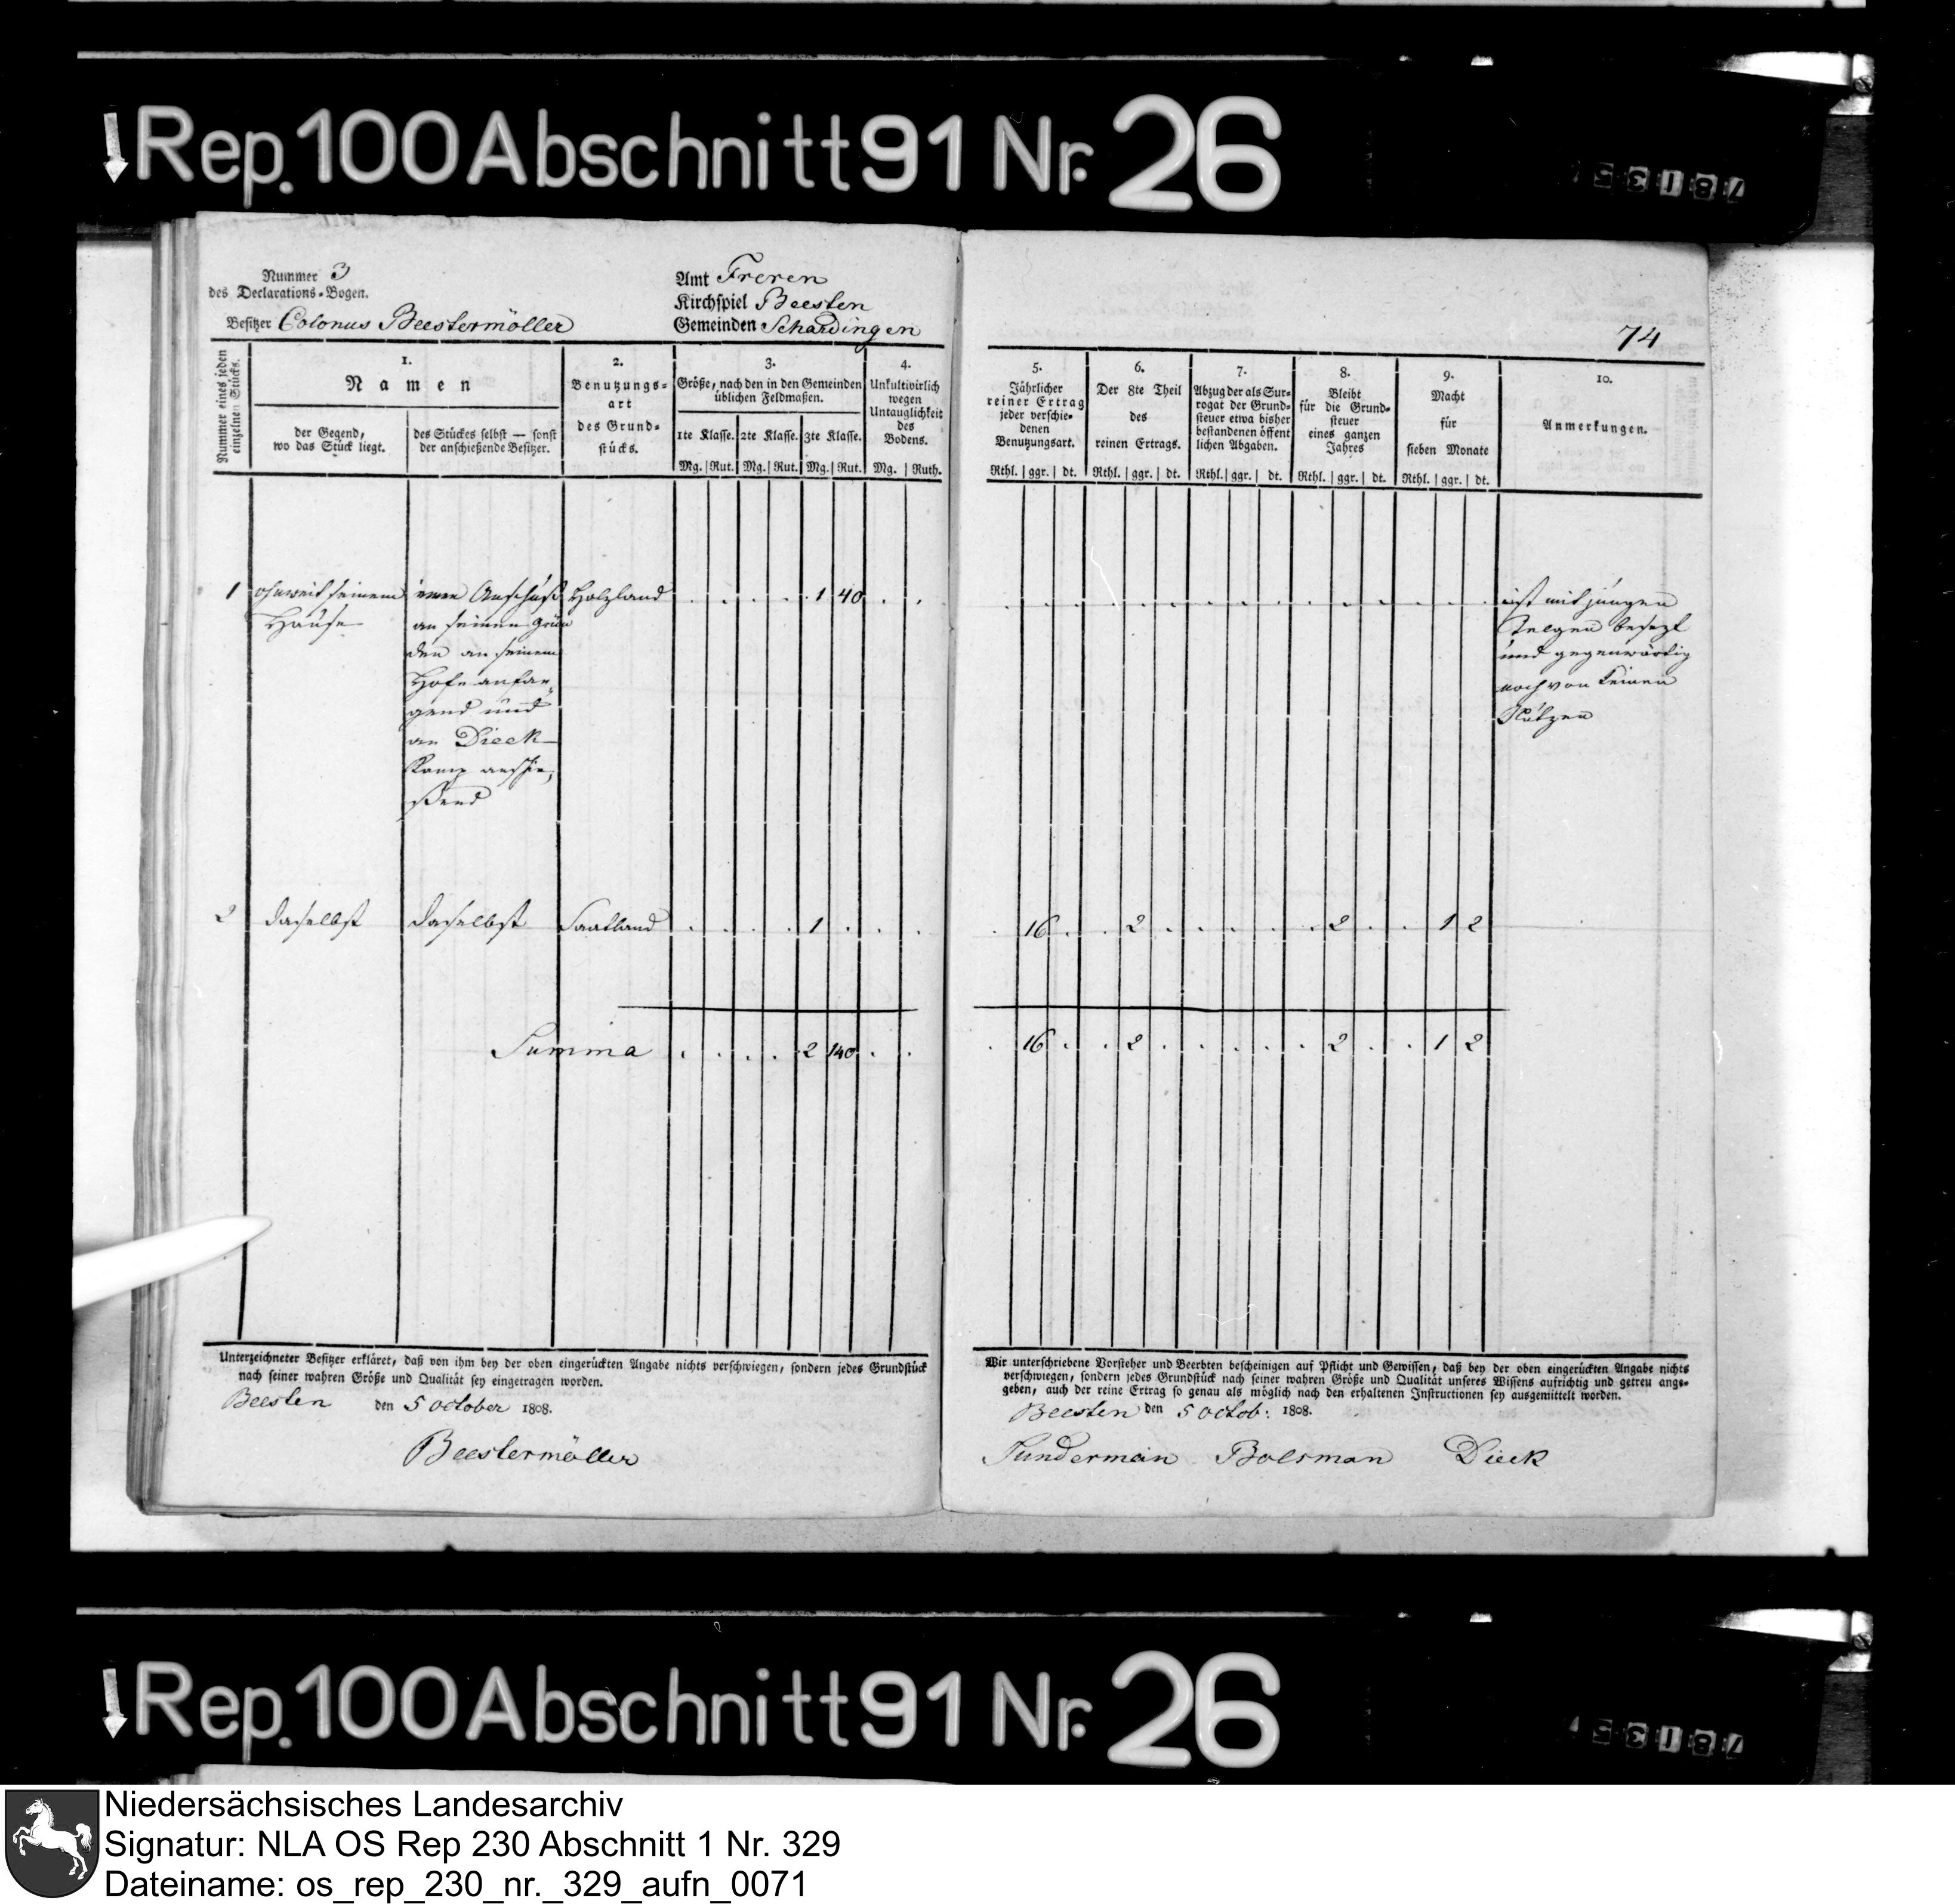 Rep. 100 Abschnitt 91 Nr. 26
Nummer 3
des Declarations-Bogen.
Besitzer Colonus Beestermöller
Amt Freren
Kirchspiel Beesten
Gemeinden Schardingen
Nummer eines jeden einzelnen Stücks.
1.
Namen
der Gegend,
wo das Stück liegt.
des Stückes selbst — sonst
der anschießende Besitzer.
2.
Benutzungs-
art
des Grund-
stücks.
3.
Größe, nach den in den Gemeinden
üblichen Feldmaßen.
1te Klasse. 2te Klasse. 3te Klasse.
Mg. Rut. Mg. Rut. Mg. Rut.
4.
Unkultivirlich
wegen
Untauglichkeit
des
Bodens.
Mg. Ruth.
1 ohnweit seinem einen Anschuß Holzland 1 40
Hause an seinen Grün
den an seinem
Hofe anfan
gend und
an Dieck
Kamp anschie
ßend
2 daselbst daselbst Saatland 1
Summa 2 140
Unterzeichneter Besitzer erkläret, daß von ihm bey der oben eingerückten Angabe nichts verschwiegen, sondern jedes Grundstück
nach seiner wahren Größe und Qualität sey eingetragen worden.
Beesten den 5 October 1808.
Beestermöller
74
5.
Jährlicher
reiner Ertrag
jeder verschie-
denen
Benutzungsart.
Rthl. ggr. dt.
6.
Der 8te Theil
des
reinen Ertrags.
Rthl. ggr. dt.
7.
Abzug der als Sur-
rogat der Grund-
steuer etwa bisher
bestandenen öffent
lichen Abgaben.
Rthl. ggr. dt.
8.
Bleibt
für die Grund-
steuer
eines ganzen
Jahres
Rthl. ggr. dt.
9.
Macht
für
sieben Monate
Rthl. ggr. dt.
10.
Anmerkungen.
ist mit jungen
Telgen besezt
und gegenwärtig
noch von keinen
Nutzen
16 2 2 1 2
16 2 2 1 2
Wir unterschriebene Vorsteher und Beerbten bescheinigen auf Pflicht und Gewissen, daß bey der oben eingerückten Angabe nichts
verschwiegen, sondern jedes Grundstück nach seiner wahren Größe und Qualität unseres Wissens aufrichtig und getreu ange-
geben, auch der reine Ertrag so genau als möglich nach den erhaltenen Instructionen sey ausgemittelt worden.
Beesten den 5 Octob: 1808.
Sunderman Bolsman Dieck
Rep. 100 Abschnitt 91 Nr. 26
Niedersächsisches Landesarchiv
Signatur: NLA OS Rep 230 Abschnitt 1 Nr. 329
Dateiname: os_rep_230_nr._329_aufn_0071